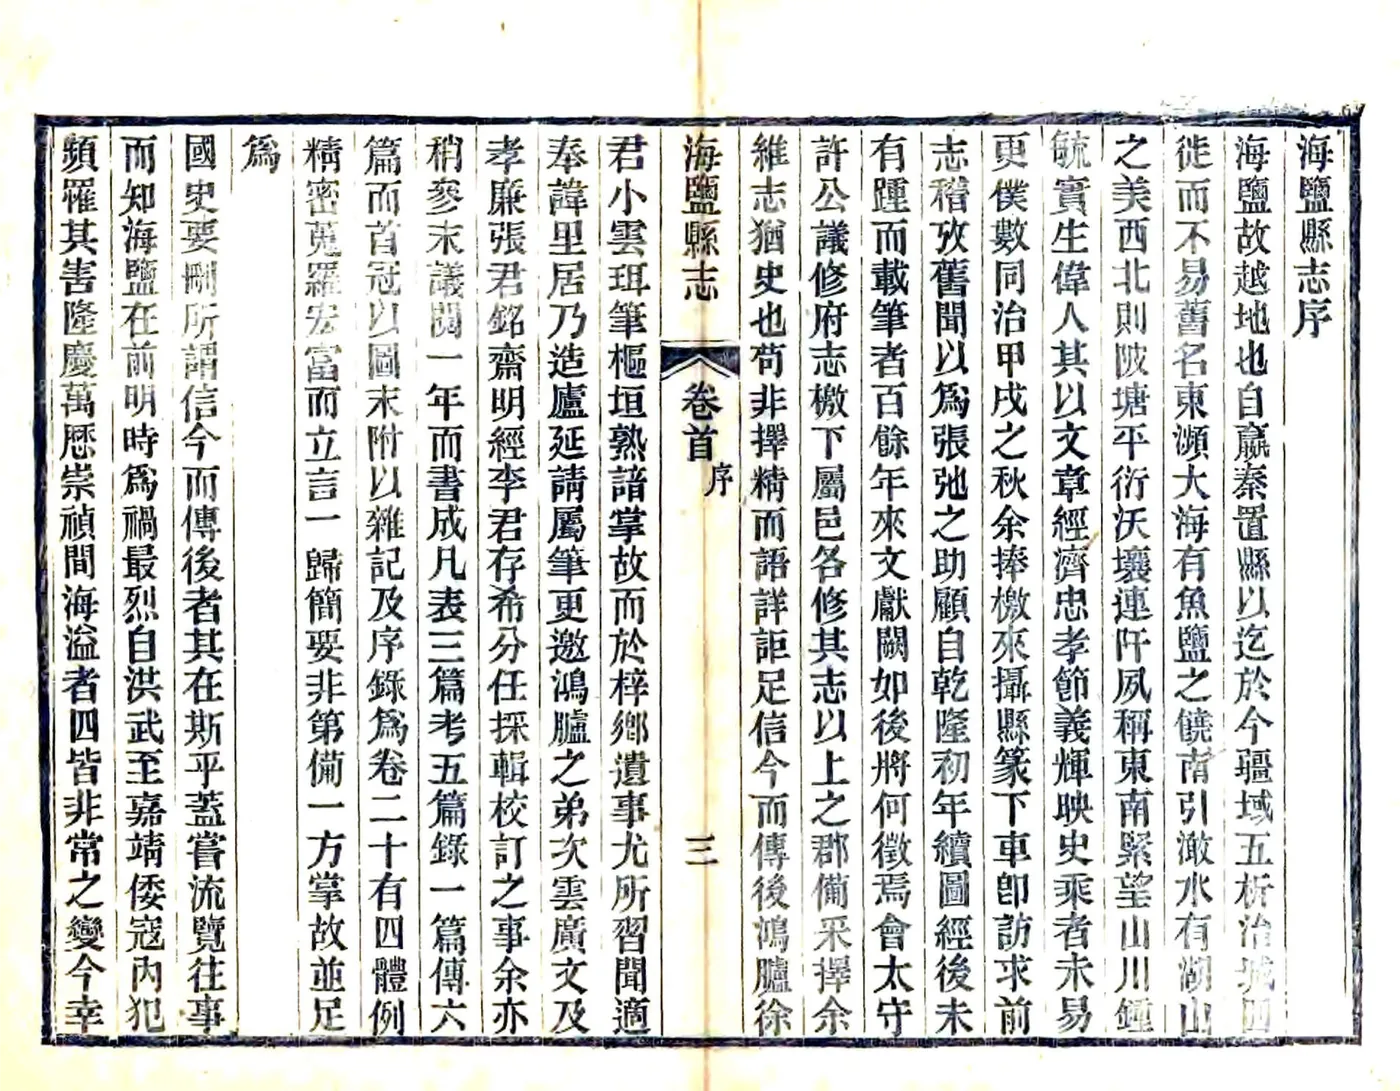 海鹽縣志序
海鹽故越地也自嬴秦置縣以迄於今疆域五析治城四
徙而不易舊名東瀕大海有魚鹽之饒南引澉水有湖山
之美西北則陂塘平衍沃壤連阡夙稱東南緊望山川鍾
毓實生偉人其以文章經濟忠孝節義輝映史乘者未易
更僕數同治甲戌之秋余捧檄來攝縣篆下車卽訪求前
志稽攷舊聞以爲張弛之助顧自乾隆初年續圖經後未
有踵而載筆者百餘年來文獻闕如後將何徵焉會太守
許公議修府志檄下屬邑各修其志以上之郡備采擇余
維志猶史也苟非擇精而語詳詎足信今而傳後鴻臚徐
海鹽縣志
卷首
序
三
君小雲珥筆樞垣熟諳掌故而於梓鄉遺事尤所習聞適
奉諱里居乃造廬延請屬筆更邀鴻臚之弟次雲廣文及
孝廉張君銘齋明經李君存希分任採輯校訂之事余亦
稍參末議閱一年而書成凡表三篇考五篇錄一篇傳六
篇而首冠以圖末附以雜記及序錄爲卷二十有四體例
精密蒐羅宏富而立言一歸簡要非第備一方掌故並足
爲
國史要刪所謂信今而傳後者其在斯乎蓋嘗流覽往事
而知海鹽在前明時爲禍最烈自洪武至嘉靖倭寇內犯
頻罹其害隆慶萬歷崇禎間海溢者四皆非常之變今幸